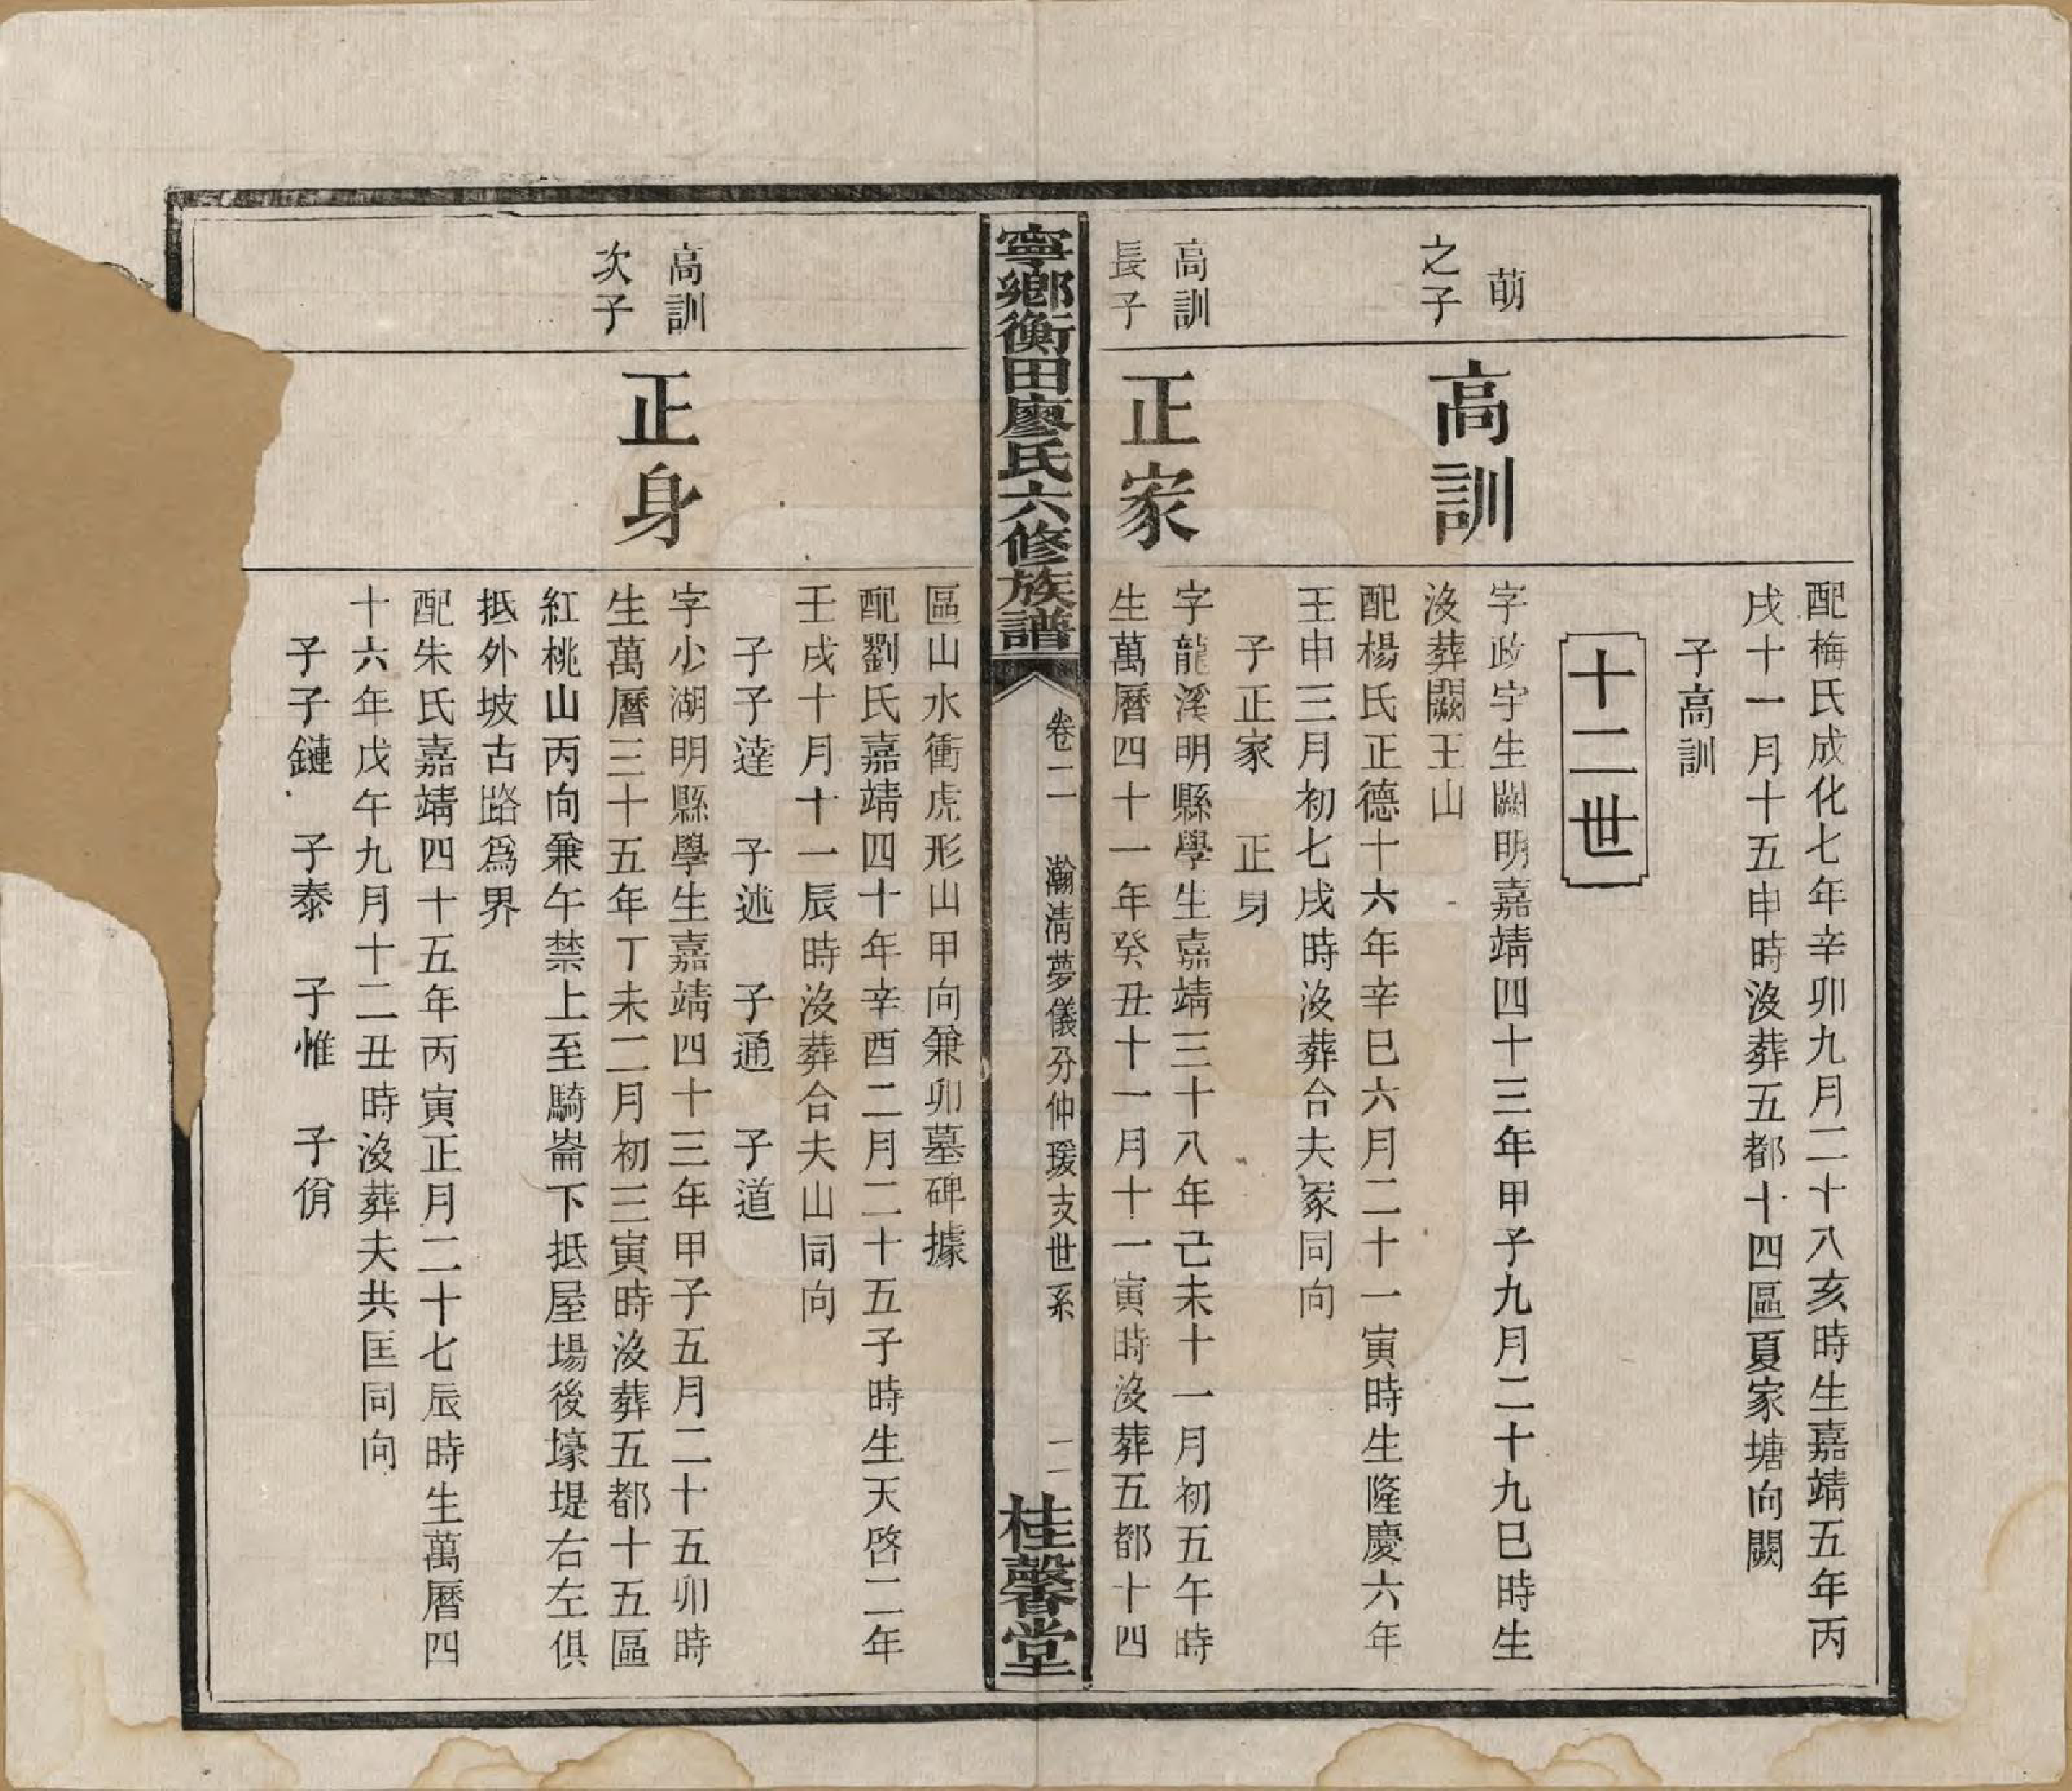 配梅氏成化七年辛卯九月二十八亥時生嘉靖五年丙
戌十一月十五申時沒葬五都十四區夏家塘向闕
子高訓
十二世
萌
之子
高訓
字政宇生闕明嘉靖四十三年甲子九月二十九巳時生
沒葬闕王山
配楊氏正德十六年辛巳六月二十一寅時生隆慶六年
壬申三月初七戌時沒葬合夫冢同向
子正家　正身
高訓
長子
正家
字龍溪明縣學生嘉靖三十八年己未十一月初五午時
生萬曆四十一年癸丑十一月十一寅時沒葬五都十四
寧鄉衡田廖氏六修族譜
卷二　瀚清夢儀分仲瑗支世系　二
桂馨堂
區山水衝虎形山甲向兼卯墓碑據
配劉氏嘉靖四十年辛酉二月二十五子時生天啓二年
壬戌十月十一辰時沒葬合夫山同向
子子達　子述　子通　子道
高訓
次子
正身
字小湖明縣學生嘉靖四十三年甲子五月二十五卯時
生萬曆三十五年丁未二月初三寅時沒葬五都十五區
紅桃山丙向兼午禁上至騎崙下抵屋場後壕堤右左俱
抵外坡古路爲界
配朱氏嘉靖四十五年丙寅正月二十七辰時生萬曆四
十六年戊午九月十二丑時沒葬夫共匡同向
子子鏈　子泰　子惟　子佾